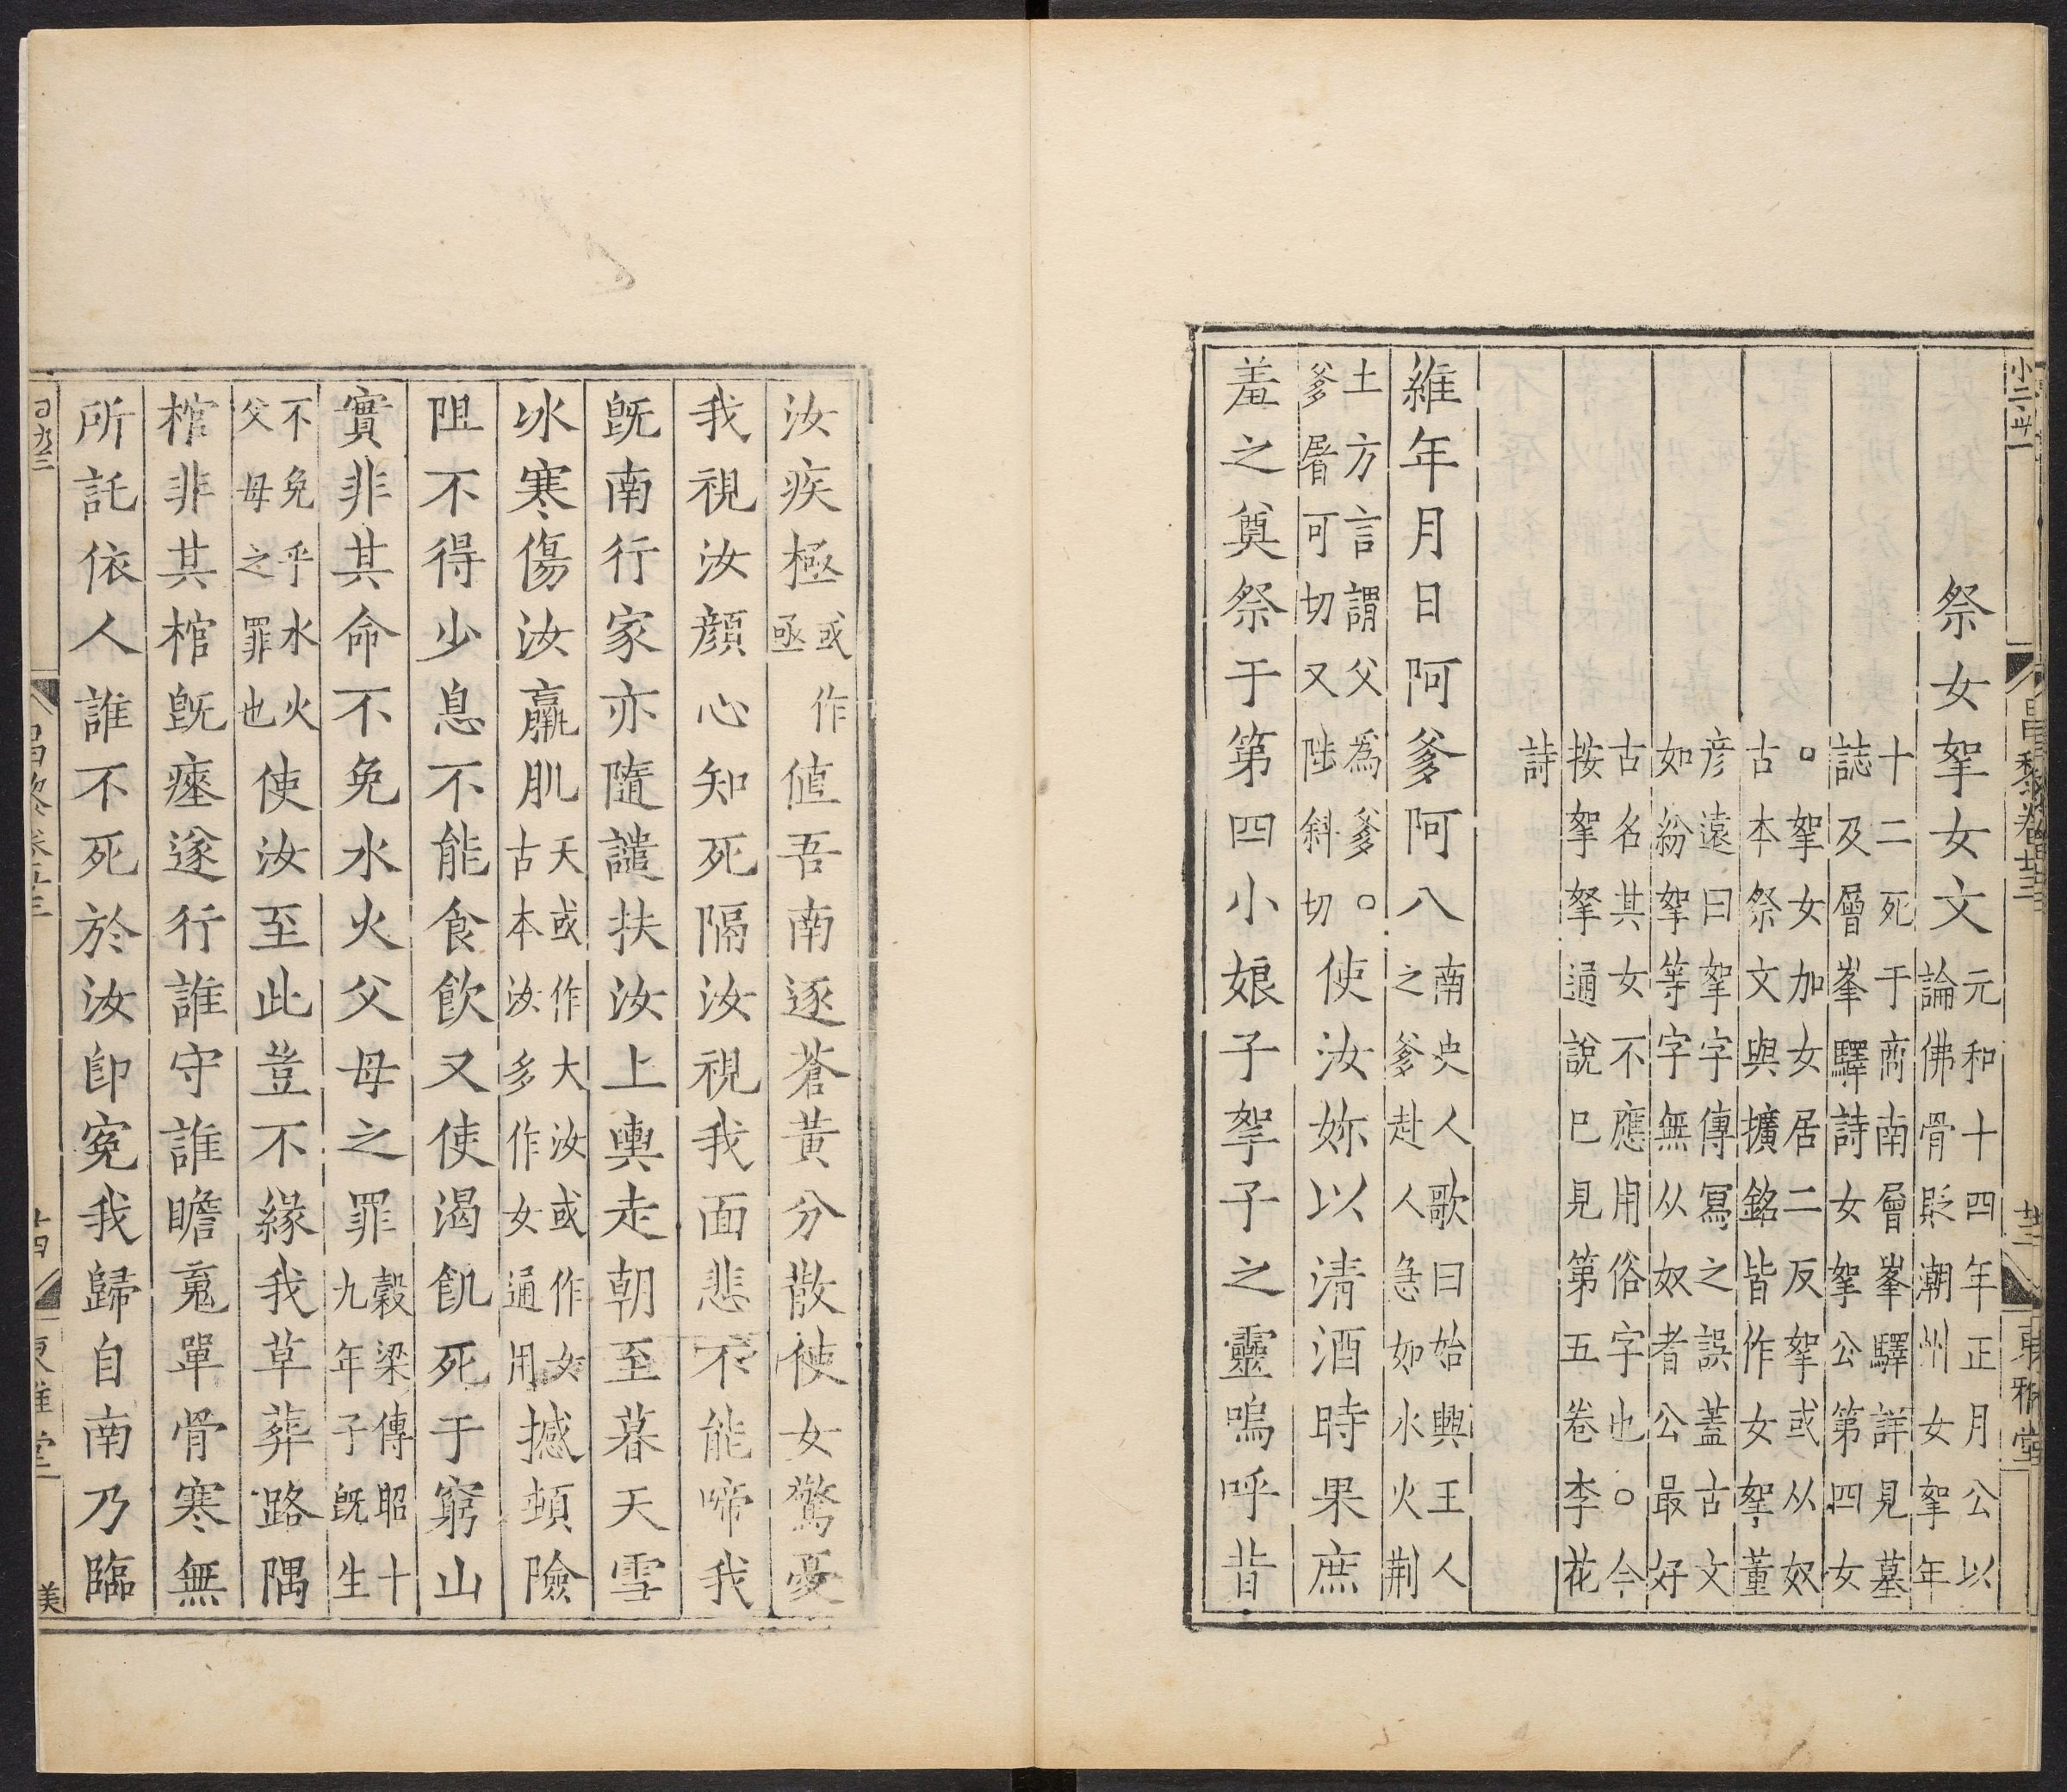 祭女挐女文元和十四年正月公以
論佛骨貶潮州女挐年
十二死于商南層峯驛詳見墓
誌及層峯驛詩女挐公第四女
○挐女加女居二反挐或从奴
古本祭文與擴銘皆作女挐董
彦遠曰挐字傳寫之誤蓋古文
如紛挐等字無从奴者公最好
古名其女不應用俗字也○今
按挐拏通說巳見第五卷李花
詩
維年月日阿爹阿八南史人歌曰始興王人
之爹赴人急如水火荆
土方言謂父爲爹○
爹屠可切又陟斜切使汝妳以清酒時果庶
羞之奠祭于第四小娘子挐子之靈嗚呼昔
汝疾極或作亟値吾南逐蒼黃分散使女驚憂
我視汝顏心知死隔汝視我面悲不能啼我
旣南行家亦隨譴扶汝上輿走朝至暮天雪
冰寒傷汝羸肌天或作大汝或作女
古本汝多作女通用撼頓險
阻不得少息不能食飲又使渴飢死于窮山
實非其命不免水火父母之罪穀梁傳昭十
九年子旣生
不免乎水火
父母之罪也使汝至此豈不緣我草葬路隅
棺非其棺旣瘞遂行誰守誰瞻䰟單骨寒無
所託依人誰不死於汝卽寃我歸自南乃臨
昌黎卷廿三
廿三
東雅堂